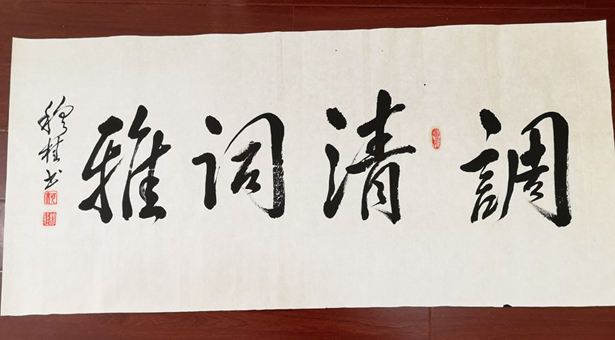 調清词雅
穆桂书